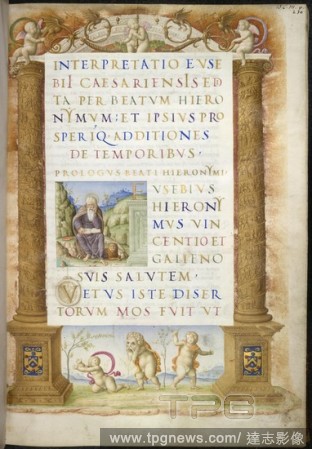 INTERPRETATIO EVSE
BII CAESARIENSIS EDI
TA PER BEATVM HIERO
NYMVM: ET IPSIVS PRO
SPERIQ· ADDITIONES
DE TEMPORIBVS·
PROLOGVS BEATI HIERONYMI
VSEBIVS
HIERONY
MVS VIN
CENTIO ET
GALIENO
SVIS SALVTEM·
VETVS ISTE DISER
TORVM MOS FVIT VT
TPG
www.tpgnews.com/ 達志影像